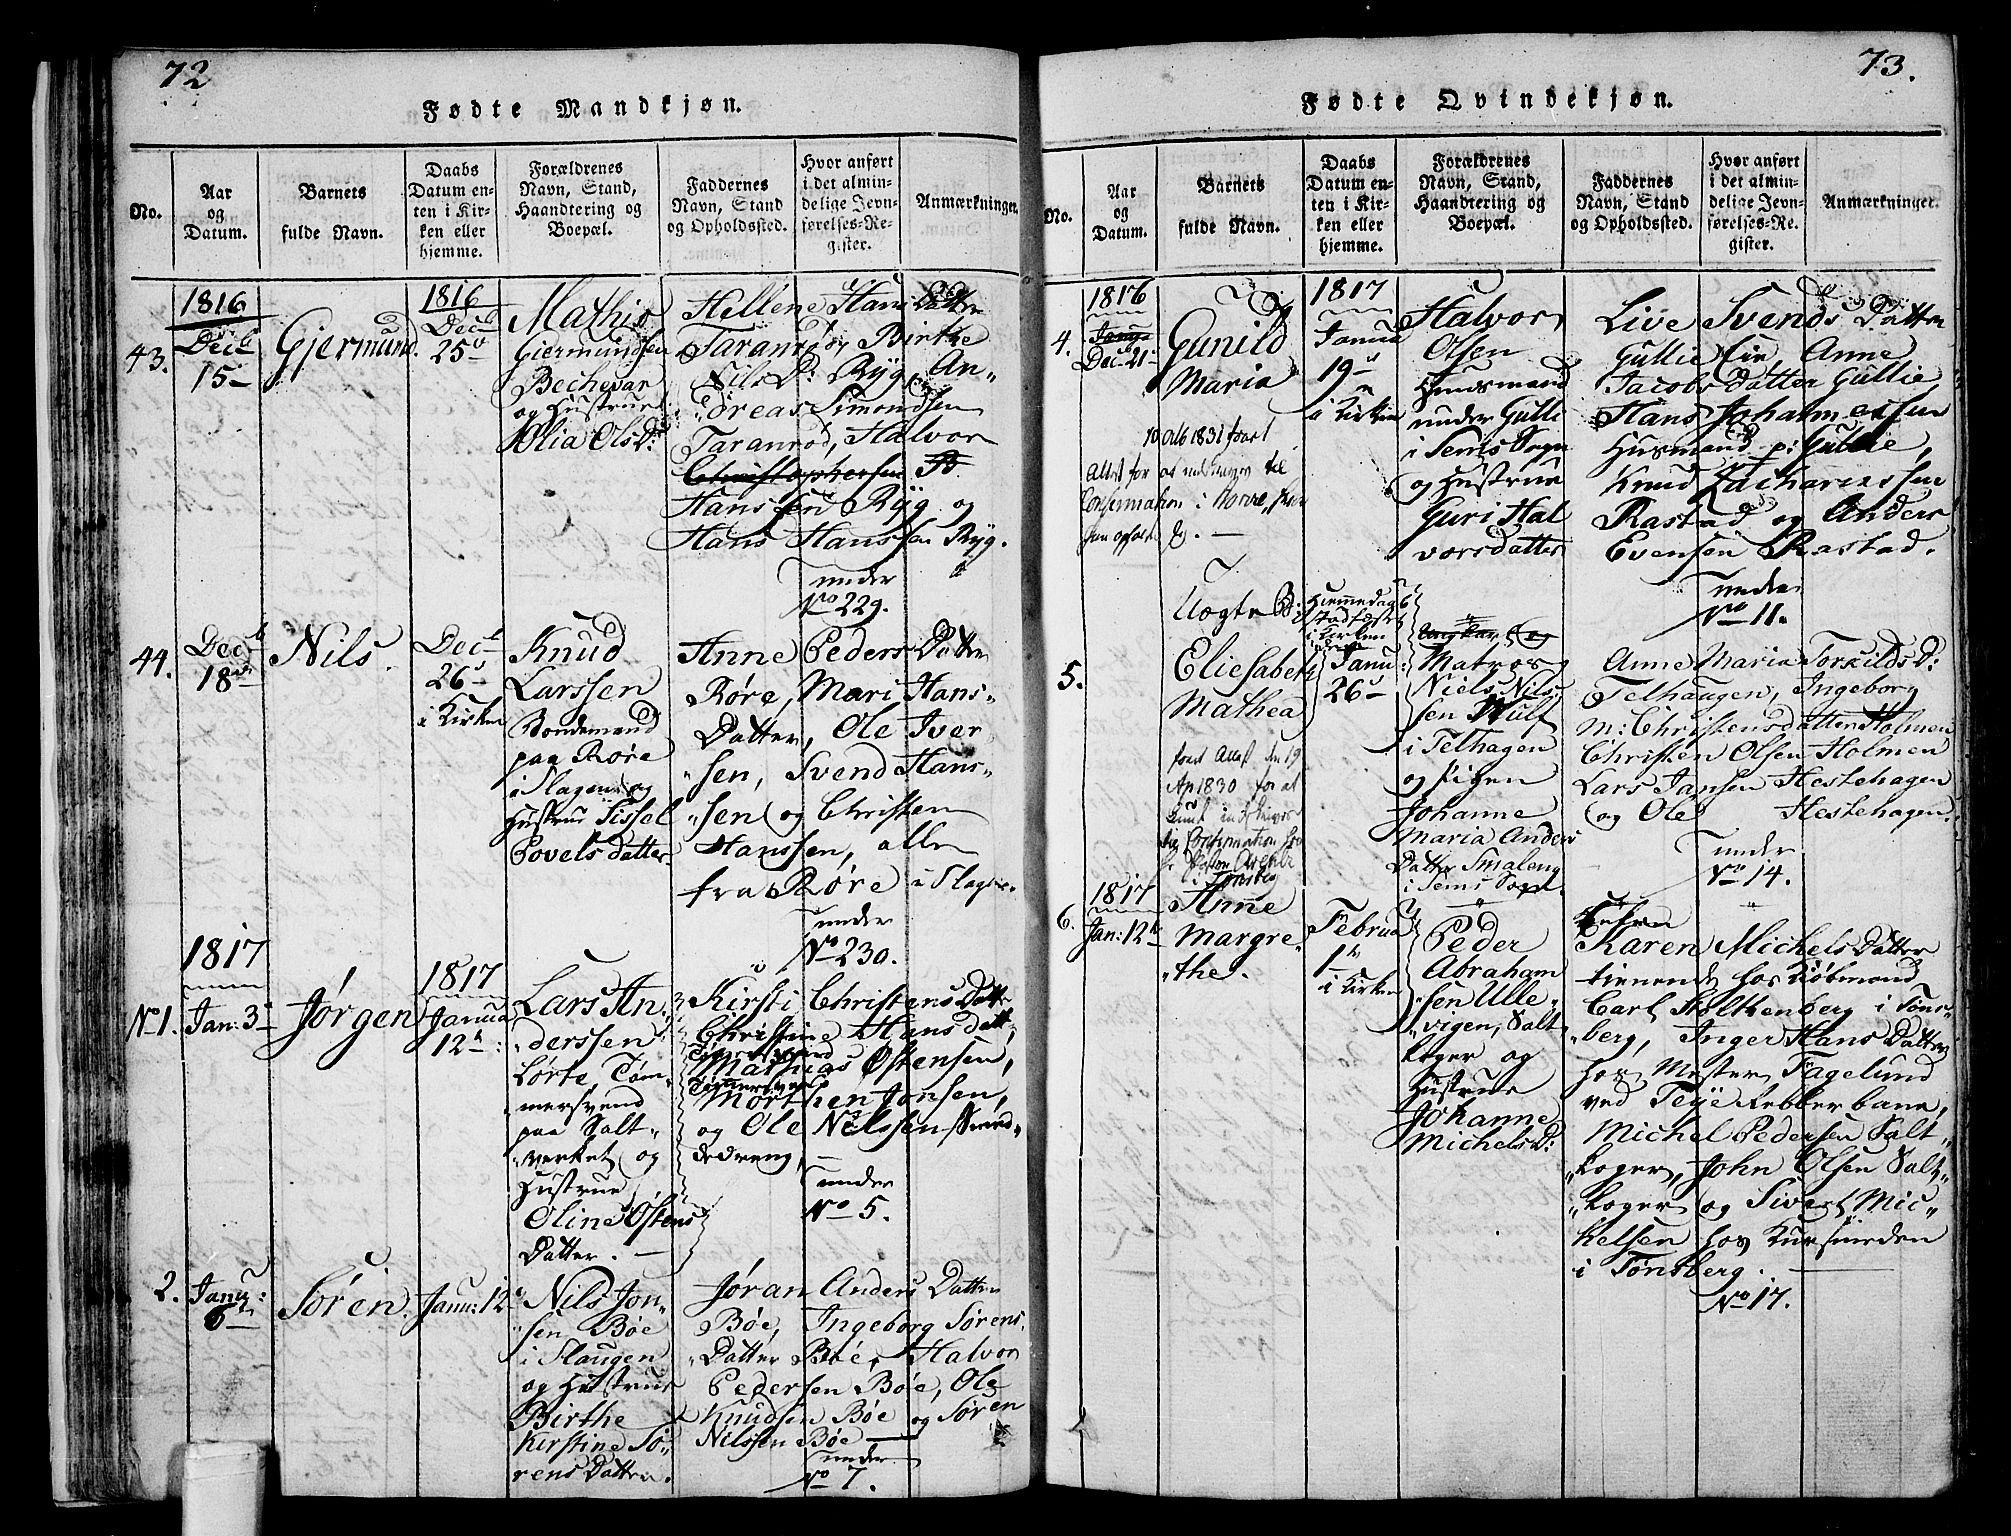 72
Fødte Mandkjøn.
No.
Aar
og
Datum.
Barnets
fulde Navn.
Daabs
Datum en-
ten i Kir-
ken eller
hjemme.
Forældrenes
Navn, Stand,
Haandtering og
Boepæl.
Faddernes
Navn, Stand
og Opholdssted.
Hvor anført
i det almin-
delige Jevn-
førelses-Re-
gister.
Anmærkninger.
43.
1816
Decb
15
Gjermund.
1816
Decb
25
Mathis
Giermundsen
Bechevar
og Hustrue
Olia Ols D:
Hellene Hans Datter
Taranrød, Birthe
Nils D: Ryg, An-
dreas Simondsen
Taranrød, Halvor
Christophersen
Hanssen Ryg og
Hans Hanssen Ryg.
under
No 229.
44.
Decb
18
Nils.
Decb
26
i Kirken
Knud
Larssen
Bondemand
paa Røre
i Slagen og
Hustrue Sissel
Povels datter
Anne Peders Datter
Røre, Mari Hans-
Datter, Ole Iver-
sen, Svend Hans-
sen og Christen
Hanssen, alle
fra Røre i Slagen.
under
No 230.
1817
No 1.
Jan: 3
Jørgen
1817
Janua
12
Lars An-
derssen
Lørte, Tøm-
mersvend
paa Salt-
verket og
Hustrue
Oline Østens
Datter.
Kirsti Christens Datter
Christine Hansdatt,
Mathias Østensen,
Tømmersvend
Morthen Jonsen,
og Ole Nilssen Smed-
dedreng,
under
No 5.
2.
Janu:
6
Søren.
Janu: 12
Nils Jon-
sen Bøe
i Slaugen
og Hustrue
Birthe
Kirstine Sø-
rens Datter.
Jøran Anders Datter
Bøe, Ingeborg Sørens
Datter Bøe, Halvor
Pedersen Bøe, Ole
Knudsen Bøe og Søren
Nilssen Bøe
under
No 7.
73.
Fødte Qvindekjøn.
No.
Aar
og
Datum.
Barnets
fulde Navn.
Daabs
Datum en-
ten i Kir-
ken eller
hjemme.
Forældrenes
Navn, Stand,
Haandtering og
Boepæl.
Faddernes
Navn, Stand
og Opholdssted.
Hvor anført
i det almin-
delige Jevn-
førelses-Re-
gister.
Anmærkninger.
4.
1816
Dec: 21
Gunild
Maria
10 Octb 1831 faaet
Attest for at
Confirmation i
1817
Janua
19
i Kirken
Halvor
Olsen
Huusmand
under Gulli
i Sems Sogn
og Hustrue
Guri Hal
vorsdatter
Live Svends Datter
Gullie Eie, Anne
Jacobs Datter Gullie,
Hans Johannessen
Husmand p: Gullie,
Knud Zachariessen
Rastad og Anders
Evensen Rastad.
under
No 11.
5.
Uægte B:
Eliesabeth
Mathea
faaet Attest den 19
Ap 1830 for at
Hiemmedøbt
i Kirken
Janu:
26
Matros
Niels Nils-
sen Wulf
i Telhagen
og Pigen
Johanne
Maria Anders
Datter Smaleng
i Sems Sogn
Anne Maria Torkilds D:
Telhaugen, Ingeborg
M: Christensdatter Holmen
Christen Olsen Holmen
Lars Jansen Hestehagen
og Ole Hestehagen.
under
No 14.
6.
1817
Jan: 12
Anne
Margre-
the.
Februa
1
i Kirken
Peder
Abraham
sen Ulle-
vigen, Salt
koger og
Hustrue
Johanne
Michels D:
Karen Michels Datter
tienende hos Kiøbmand
Carl Stoltenberg i Tøns-
berg, Inger Hans Datter
hos Mester Fagelund
ved Teye Rebberbane,
Michel Pedersen Salt-
koger, John Olsen Salt-
koger og Sivert Mic-
kelsen hos Kursmeden
i Tønsberg.
No 17.